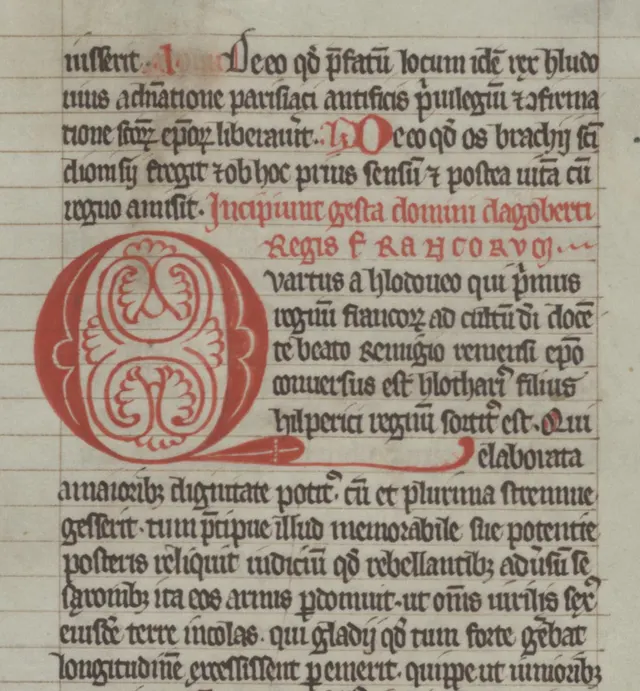 iusserit. De eo qđ p̄fatū locum idē rex hludo
uius a dn̄atione parisiaci antificis p̄uilegiū ⁊ ↄfirma
tione sc̄orꝝ ep̄orꝝ liberauit. De eo qđ os brachij sc̄i
dionisij fregit ⁊ ob hoc prius sensū ⁊ postea uitā cū
regno amisit. Incipiunt gesta domini dagoberti
Regis FRANCORVM.
Qvartus a hlodoueo qui p̄mus
regum francorꝝ ad cultū dī docē
te beato Remigio remensi ep̄o
conuersus est hlothariꝰ filius
hilperici regum sortitꝰ est. Qui
elaborata
a maioribꝫ dignitate potitꝰ. cū et plurima strenue
gesserit. tum p̄cipue illud memorabile sue potentie
posteris reliquit indiciū qđ rebellantibꝫ aduersū se
saxonibꝫ ita eos armis ꝑdomuit. ut om̄s uirilis sexꝰ
eiusdē terre incolas. qui gladij qđ tum forte gerebat
longitudinē excessissent peremerit. quippe ut iunioribꝫ